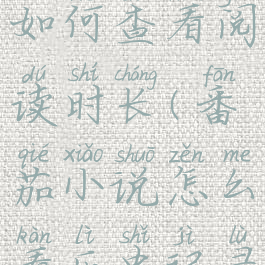 如何查看阅
dú shí cháng fān
读时长(番
qié xiǎo shuō zěn me
茄小说怎么
kàn lì shǐ jì lù